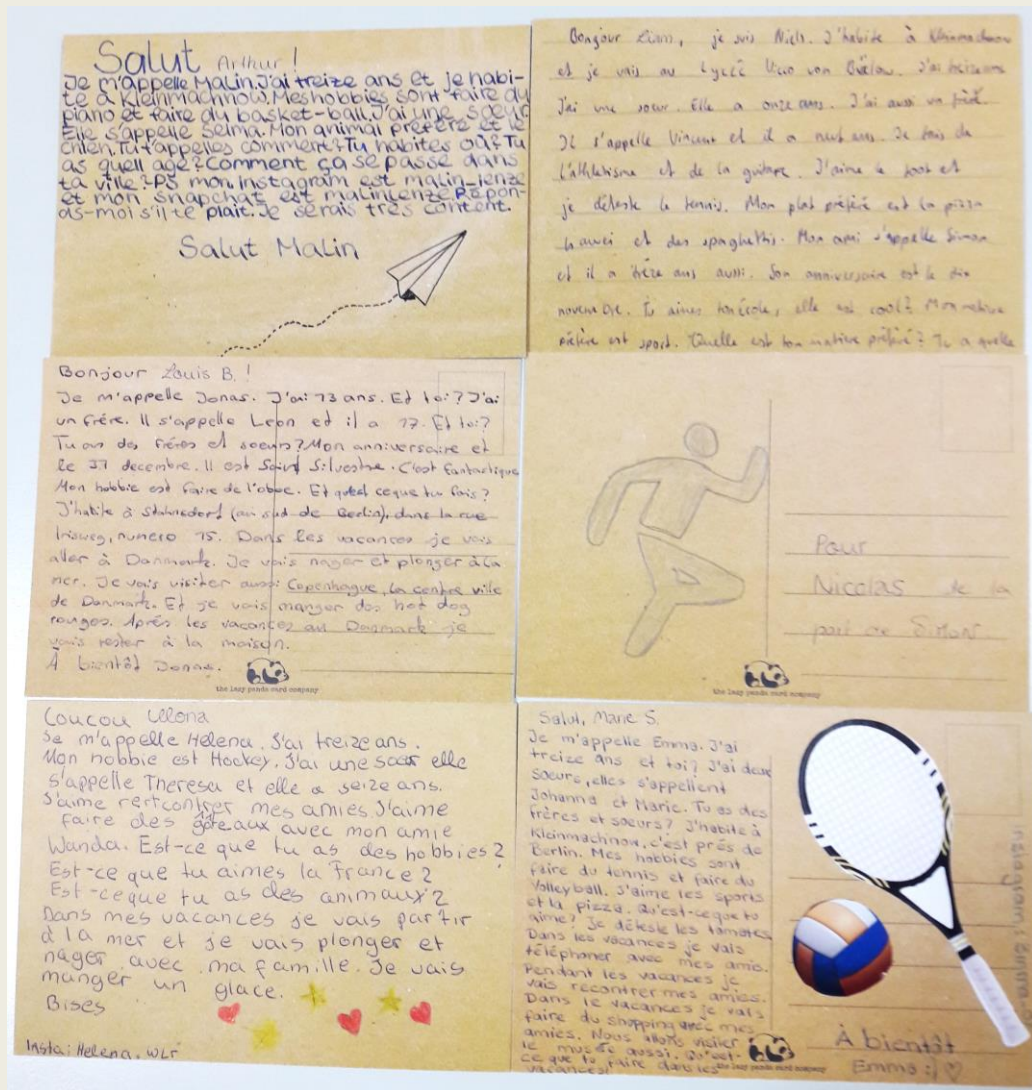 Salut Arthur!
Je m'appelle Malin. J'ai treize ans et je habi-
te à Kleinmachnow. Mes hobbies sont faire du
piano et faire du basket-ball. J'ai une sœur
Elle s'appelle Selma. Mon animal préféré et le
chien. Tu t'appelles comment? Tu habites où? Tu
as quell age? Comment ça se passe dans
ta ville? PS mon Instagram est malin_lenze
et mon snapchat est malinlenze. Répon-
ds-moi s'il te plait. Je serais très content.
Salut Malin
Bonjour Liam, je suis Niels. J'habite à Kleinmachnow
et je vais au Lycée Vicco von Bülow. J'ai treize ans
J'ai une soeur. Elle a onze ans. J'ai aussi un frère.
Il s'appelle Vincent et il a neuf ans. Je fais de
l'athletisme et de la guitare. J'aime le foot et
je déteste le tennis. Mon plat préféré est la pizza
hawei et des spaghettis. Mon ami s'appelle Simon
et il a treze ans aussi. Son anniversaire est le dix
novembre. Tu aimes ton école, elle est cool? Mon matiere
préfère est sport. Quelle est ton matière préféré? Tu a quelle
Bonjour Louis B.!
Je m'appelle Jonas. J'ai 13 ans. Et toi? J'ai
un frére. Il s'appelle Leon et il a 17. Et toi?
Tu as des fréres et soeurs? Mon anniversaire et
le 31 decembre. Il est Saint Silvestre. C'est fantastique
Mon hobbie est faire de l'oboe. Et ceque tu fais?
J'habite à Stahnsdorf (au sud de Berlin), dans la rue
numero 15. Dans les vacances je vais
aller à Danmark. Je vais nager et plonger à la
mer. Je vais visiter aussi Copenhague, la centre ville
de Danmark. Et je vais manger des hot dog
rouges. Aprés les vacances au Danmark je
vais rester à la maison.
À bientôt Jonas.
the lazy panda card company
Pour
Nicolas de la
part de Simon
the lazy panda card company
Coucou
Je m'appelle Helena. J'ai treize ans.
Mon hobbie est Hockey. J'ai une sœur elle
s'appelle Theresa et elle a seize ans.
J'aime rencontrer mes amies. J'aime
faire des gâteaux avec mon amie
Wanda. Est-ce que tu as des hobbies?
Est-ce que tu aimes la France?
Est-ce que tu as des animaux?
Dans mes vacances je vais partir
à la mer et je vais plonger et
nager avec ma famille. Je vais
manger un glace.
Bises
Insta: Helena.
Salut, Marie S.
Je m'appelle Emma. J'ai
treize ans et toi? J'ai deux
soeurs, elles s'appellent
Johanna et Marie. Tu as des
frères et soeurs? J'habite à
Kleinmachnow, c'est prés de
Berlin. Mes hobbies sont
faire du tennis et faire du
Volleyball. J'aime les sports
et la pizza. Qu'est-ce que to
aime? Je déteste les tomates
Dans les vacances je vais
téléphoner avec mes amis.
Pendant les vacances je
vais recontrer mes amies.
Dans le vacances je vais
faire du shopping avec mes
amies. Nous allons visiter
le musée aussi. Qu'est-
ce que tu faire dans les
vacances?
the lazy panda card company
À bientôt
Emma :) ♡
Instagram: